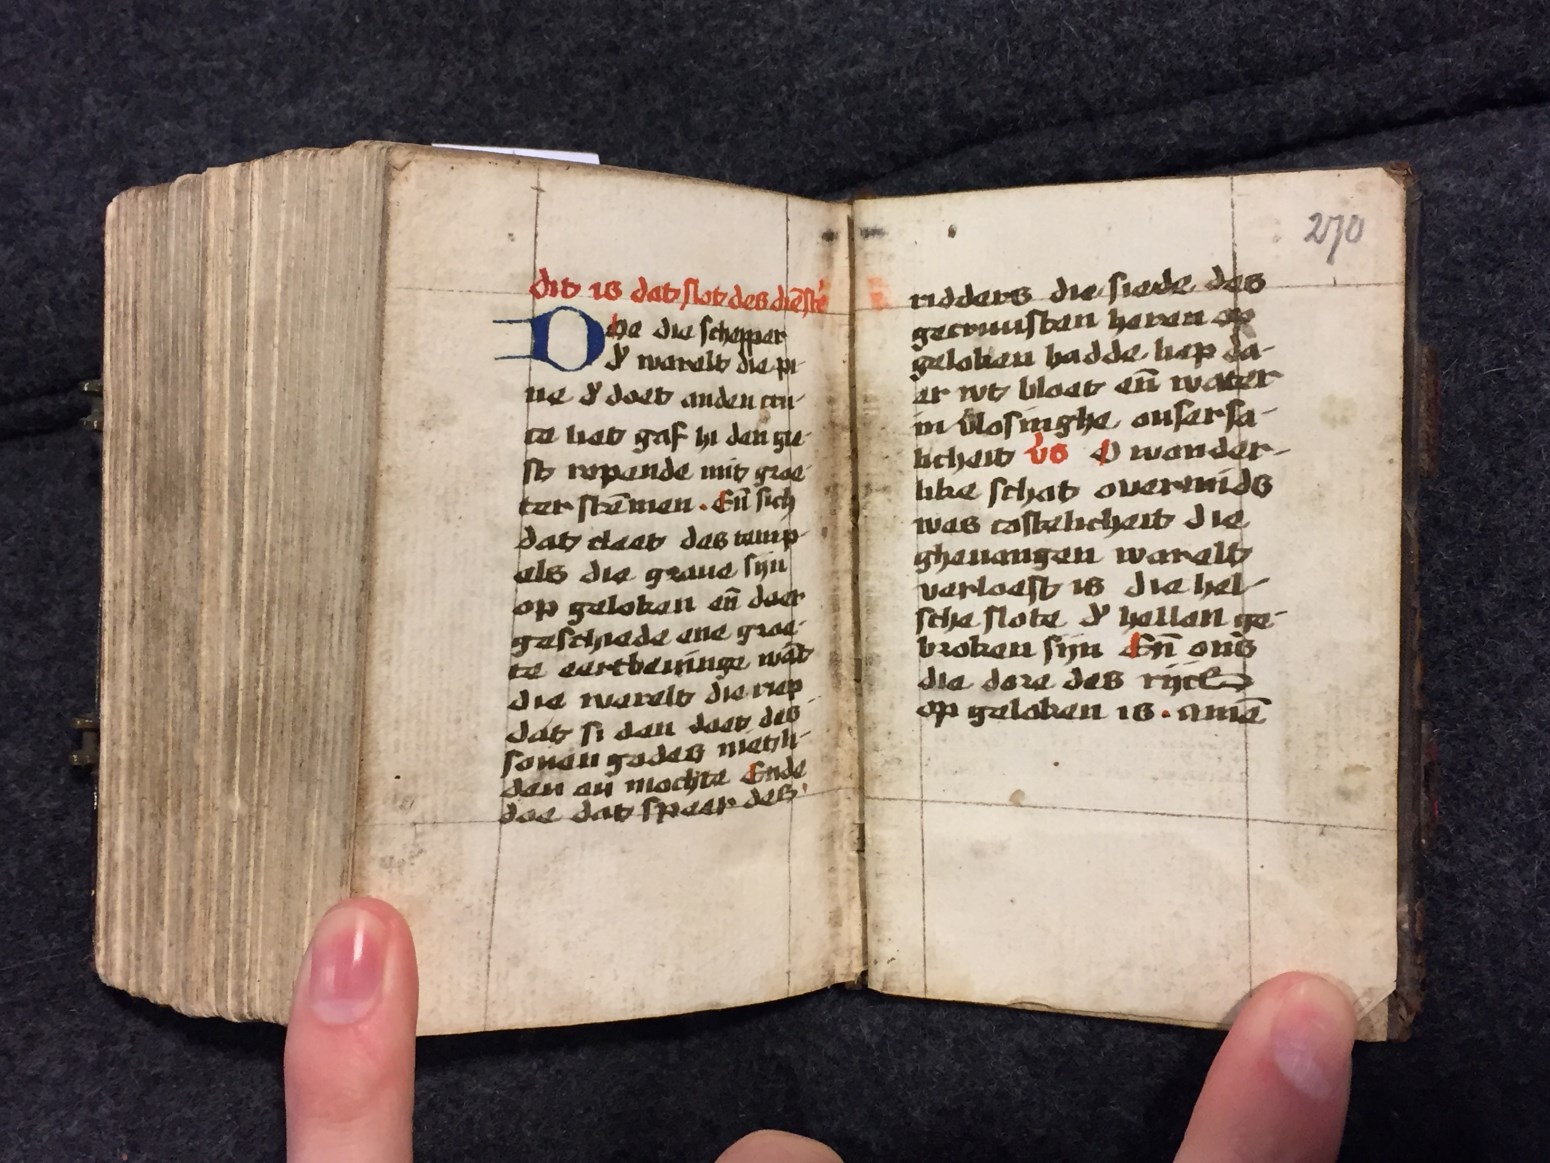 dit is dat slot des diēstē
Doe die schepper
d' warelt die pi-
ne d' doet anden cru-
ce leet gaf hi den gie-
st ropende mit groe
ter stēmen. Eñ sich
dat cleet des temp-
els die graue sijn
op geloken eñ daer
geschiede ene groe-
te eertbeuinge wāt
die warelt die riep
dat si den doet des
sonen gades niet li-
den en mochte Ende
doe dat speer des
270
ridders die siede des
gecruusten heren op
geloken hadde liep da-
er wt bloet eñ water
in v'losinghe onser sa-
licheit v's O wonder-
like schat ouermids
wes costelicheit die
gheuangen warelt
verloest is die hel-
sche slote d' hellen ge-
broken sijn Eñ ons
die dore des rijcs
op geloken is. amē